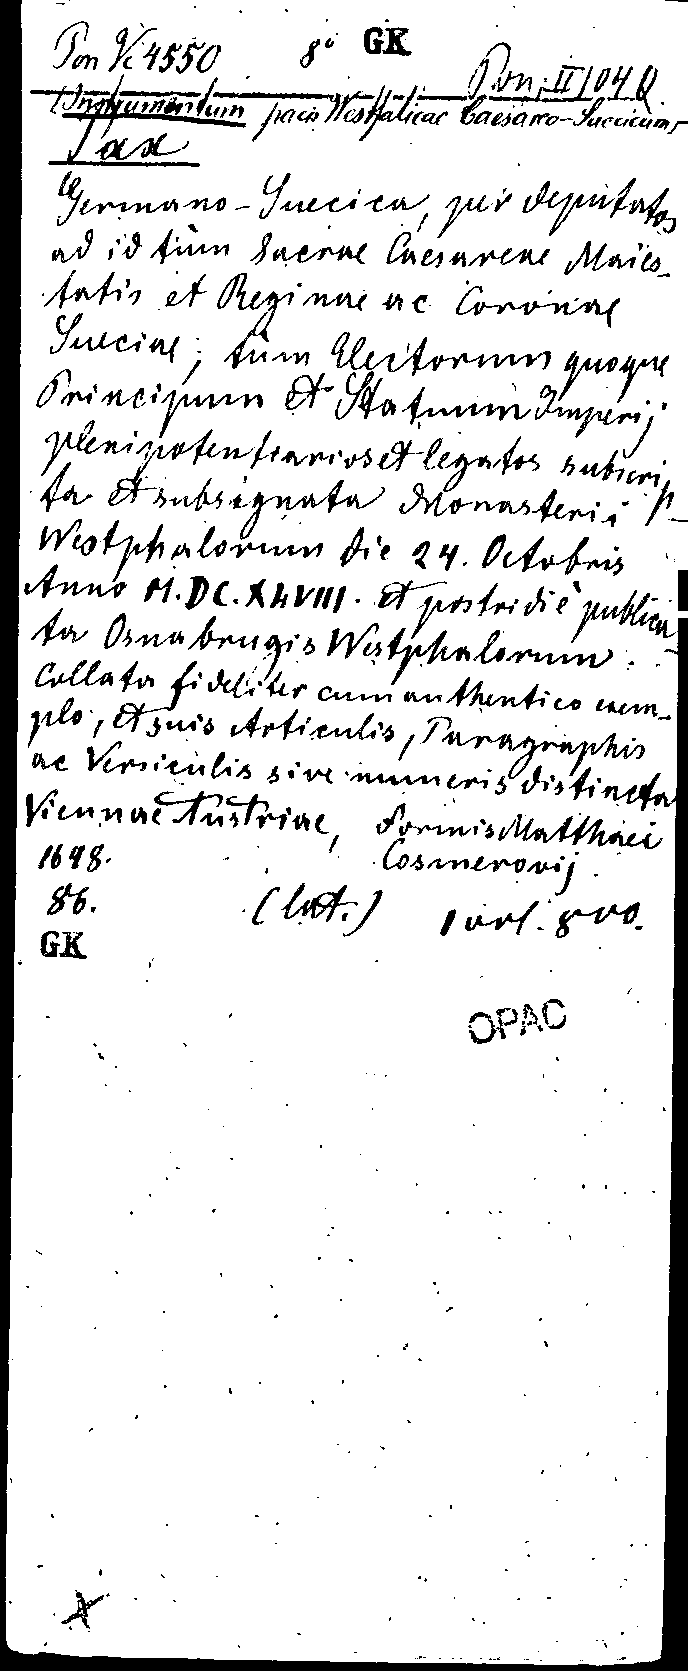 Pon Vc 4550 8° GK
Pon. II 104 Q
Instrumentum pacis Westfalicae Caesareo-Suecicum,
Pax
Germano-Suecica, per deputatos
ad id tùm Sacrae Caesareae Maies-
tatis et Reginae ac Coronae
Sueciae, tùm Electorum quoque
Principum et Statuum Imperij
plenipotentiarios et legatos subscrip-
ta et subsignata Monasterii
Westphalorum die 24. Octobris
Anno M.DC.XLVIII. et postridiè publica-
ta Osnabrugis Westphalorum.
Collata fideliter cum authentico exem-
plo, et suis Articulis, Paragraphis
ac Versiculis sive numeris distincta
Viennae Austriae, Formis Matthaei
1648. Cosmerovij.
86. (lat.) 8vo.
GK
OPAC